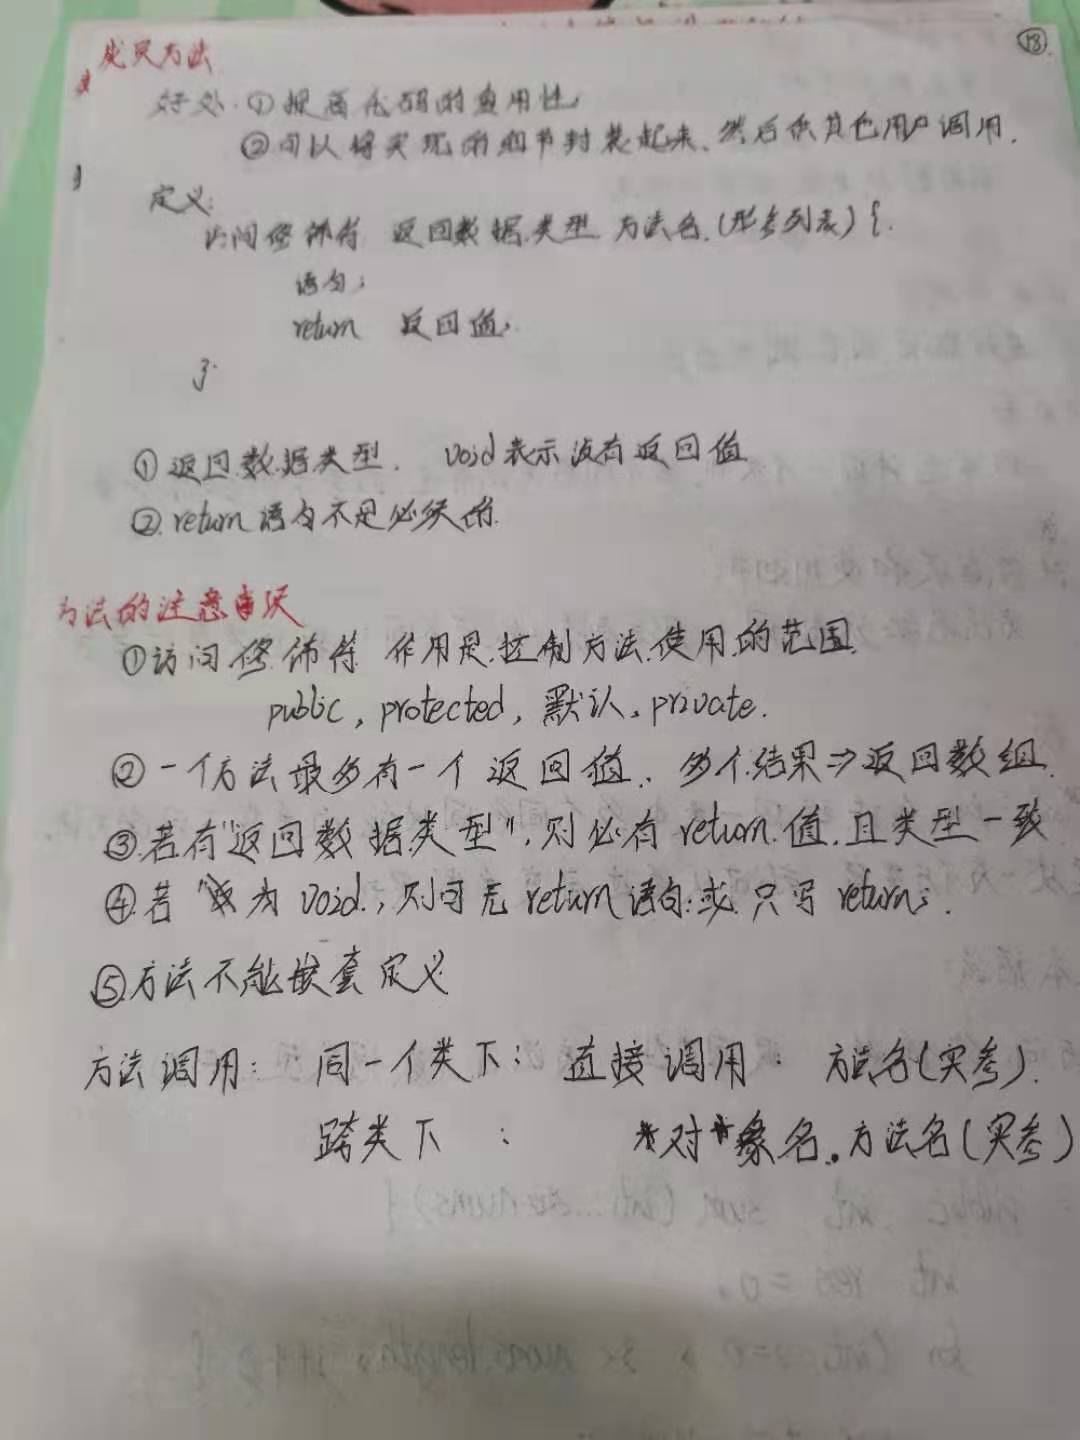 ⑱
成员方法
好处:①提高代码的复用性;
②可以将实现的细节封装起来、然后供其他用户调用.
定义:
访问修饰符 返回数据类型 方法名.(形参列表){.
语句;
return 返回值;
}
①返回数据类型. void表示没有返回值
②return语句不是必须的.
方法的注意事项
①访问修饰符 作用是控制方法使用的范围.
public, protected, 默认, private.
②一个方法最多有一个返回值. 多个结果⇒返回数组.
③若有"返回数据类型",则必有return值,且类型一致
④若 为void.,则可无return语句;或只写return;.
⑤方法不能嵌套定义
方法调用: 同一个类下: 直接调用: 方法名(实参).
跨类下: 对象名.方法名(实参)